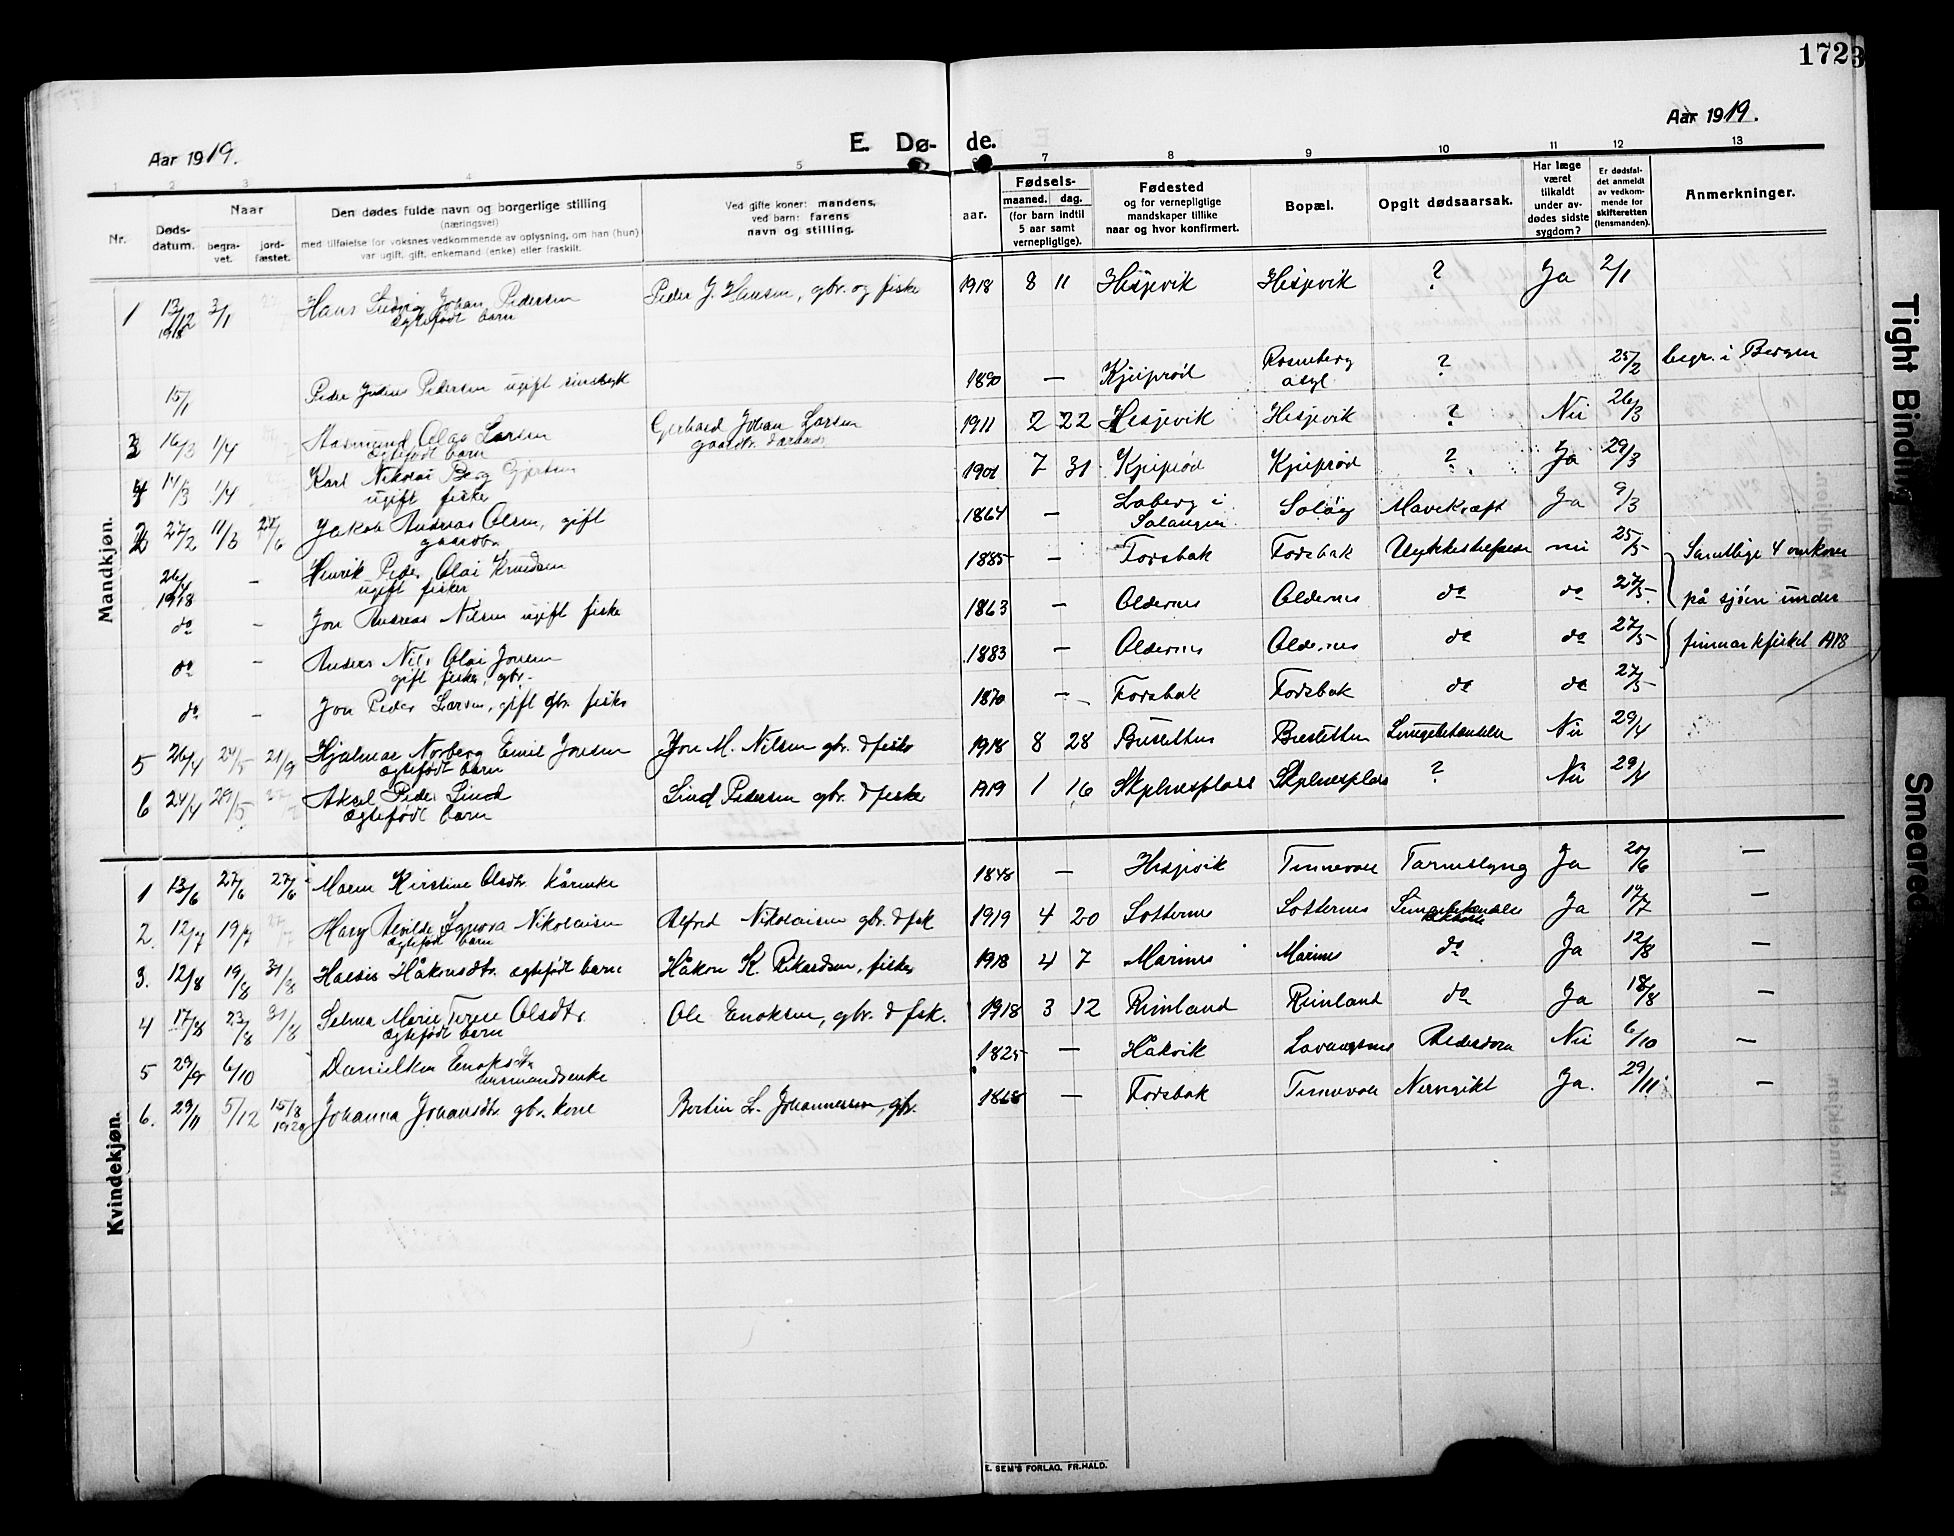 1723
Aar 1919.
E. Dø- de.
Aar 1919.
1 2 3 4 5 7 8 9 10 11 12 13
Nr.
Døds-
datum.
Naar
begra-
vet.
jord-
fæstet.
Den dødes fulde navn og borgerlige stilling
(næringsvei)
med tilføielse for voksnes vedkommende av oplysning, om han (hun)
var ugift, gift, enkemand (enke) eller fraskilt.
Ved gifte koner: mandens,
ved barn: farens
navn og stilling.
aar.
Fødsels-
maaned. dag.
(for barn indtil
5 aar samt
vernepligtige).
Fødested
og for vernepligtige
mandskaper tillike
naar og hvor konfirmert.
Bopæl.
Opgit dødsaarsak.
Har læge
været
tilkaldt
under av-
dødes sidste
sygdom?
Er dødsfal-
det anmeldt
av vedkom-
mende for
skifteretten
(lensmanden).
Anmerkninger.
Mandkjøn.
1 13/12 1918 3/1 Hans Ludvig Johan Pedersen Peder J. Hansen, gbr. og fisker 1918 8 11 Hesjevik Hesjevik ? Ja 2/1
ægtefødt barn
15/1 Peder Julius Pedersen ugift sindssyk 1890 — Kjeiprød Rosenberg ? 25/2 begr. i Bergen
asyl
3 16/3 1/4 Aasmund Olav Larsen Gerhard Johan Larsen 1911 2 22 Hesjevik Hesjevik ? Nei 26/3
ægtefødt barn
4 14/3 1/4 Karl Nikolai Berg Gjertsen 1901 7 31 Kjeiprød Kjeiprød ? Ja 29/3
ugift fisker
2 27/2 11/3 27/6 Jakob Andreas Olsen, gift 1864 — Laberg i Salangen Soløy Mavekræft Ja 9/3
gaardbr.
26/4 1918 — Henrik Peder Olai Knudsen 1885 — Forsbak Forsbak Ulykkestilfælde nei 25/5 Samtlige 4 omkom
ugift fisker
do — Jon Andreas Nilsen ugift fisker 1863 — Oldernes Oldernes do do 27/5 på sjøen under
do — Anders Nils Olai Jonsen 1883 — Oldernes Oldernes do do 27/5 finmarkfisket 1918
gift fisker, gbr.
do — Jon Peder Larsen, gift gbr. fisker 1870 — Forsbak Forsbak do do 27/5
5 26/4 24/5 21/9 Hjalmar Norberg Emil Jonsen Jon M. Nilsen gbr. & fisker 1918 8 28 Lungebetændelse Nei 29/4
ægtefødt barn
6 24/4 29/5 Aksel Peder Lind Lind Pedersen gbr. & fisker 1919 1 16 ? Nei 29/4
ægtefødt barn
Kvindekjøn.
1 13/6 27/6 27/6 Maren Kirstine Olsdtr. kårenke 1848 — Hesjevik Tennevoll Tarmslyng Ja 20/6 —
2 12/7 19/7 Mary Alvilde Signora Nikolaisen Alfred Nikolaisen gbr. & fisk 1919 4 20 Solternes Solternes Lungebetændelse Ja 17/7 —
ægtefødt barn
3. 12/8 19/8 31/8 Håkonsdtr. ægtefødt barn Håkon K. Rikardsen, fisker 1918 4 7 Marines Marines do Ja 12/8 —
4 17/8 23/8 31/8 Selma Marie Terese Olsdtr. Ole Enoksen, gbr. & fsk. 1918 3 12 Rimland Rimland do Ja 18/8 —
ægtefødt barn
5 29/9 6/10 Danielken Enoksdtr. 1825 — Håkvik Lavangsnes Alderdom Nei 6/10 —
6. 29/11 5/12 15/8 1920 Johanna Johansdtr. gbr. kone Bertin L. Johannessen, gbr. 1868 — Forsbak Tennevoll Nervegikt Ja. 29/11 —
E. SEM'S FORLAG, FR.HALD.
Tight Binding
Smeared